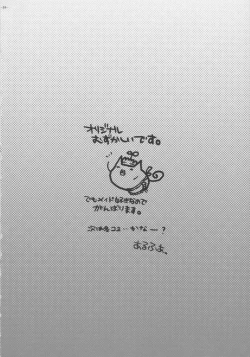 オリジナル
むずかしいです。
でもメイド好きなので
がんばります。
次は冬コミ…かなー?